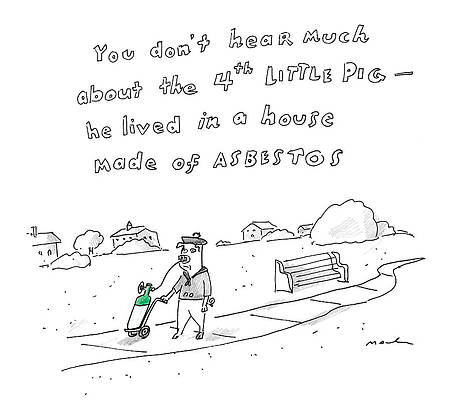 You don't hear much
about the 4th LITTLE PIG —
he lived in a house
made of ASBESTOS